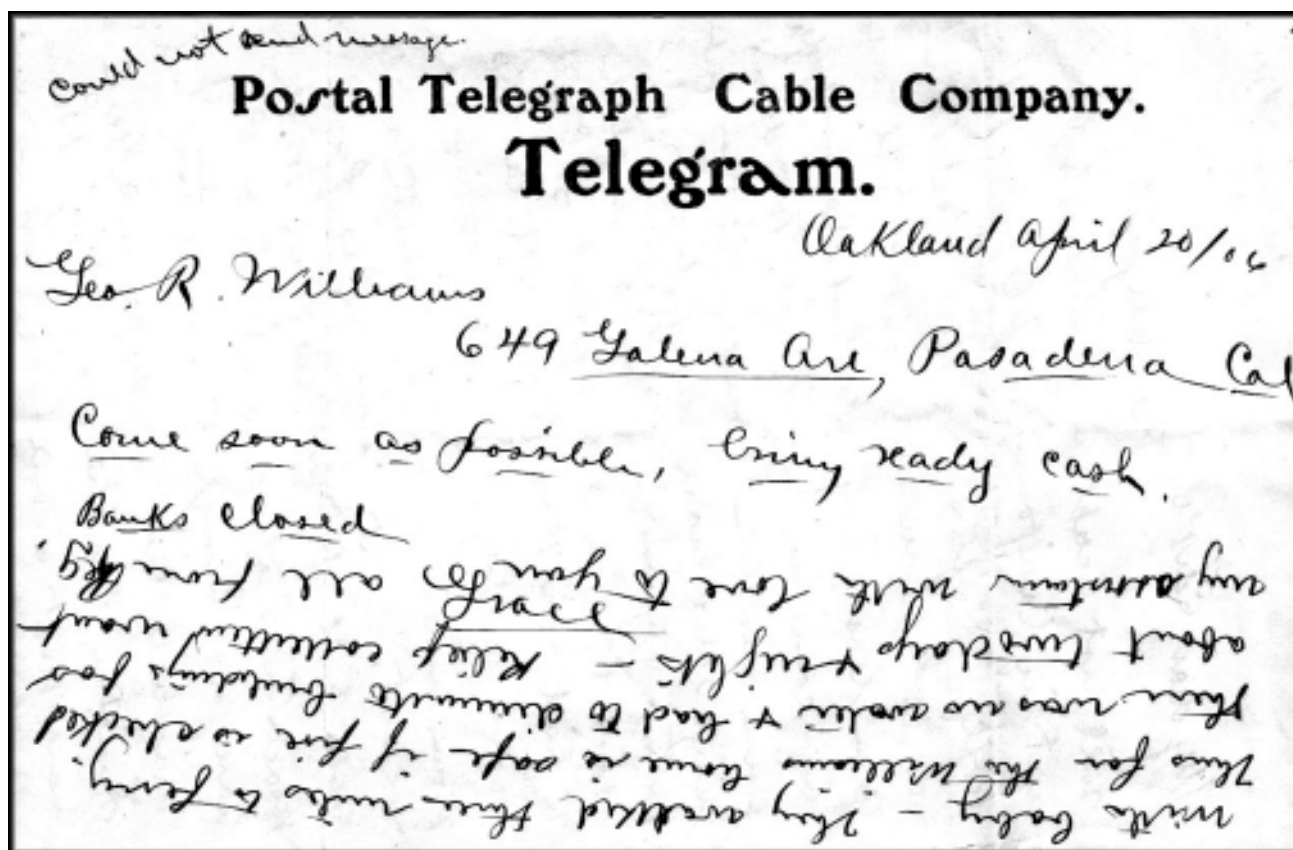 Could not send message.
Postal Telegraph Cable Company.
Telegram.
Oakland April 20/06
Geo. R. Williams
649 Galena Ave, Pasadena Cal
Come soon as possible, bring ready cash.
Banks closed
Grace
with baby – They walked three miles to ferry.
Thus far the Williams home is safe if fire is checked
There was no water & had to dinamite buildings for
about two days & nights – Relief committee want
my with love to you all from